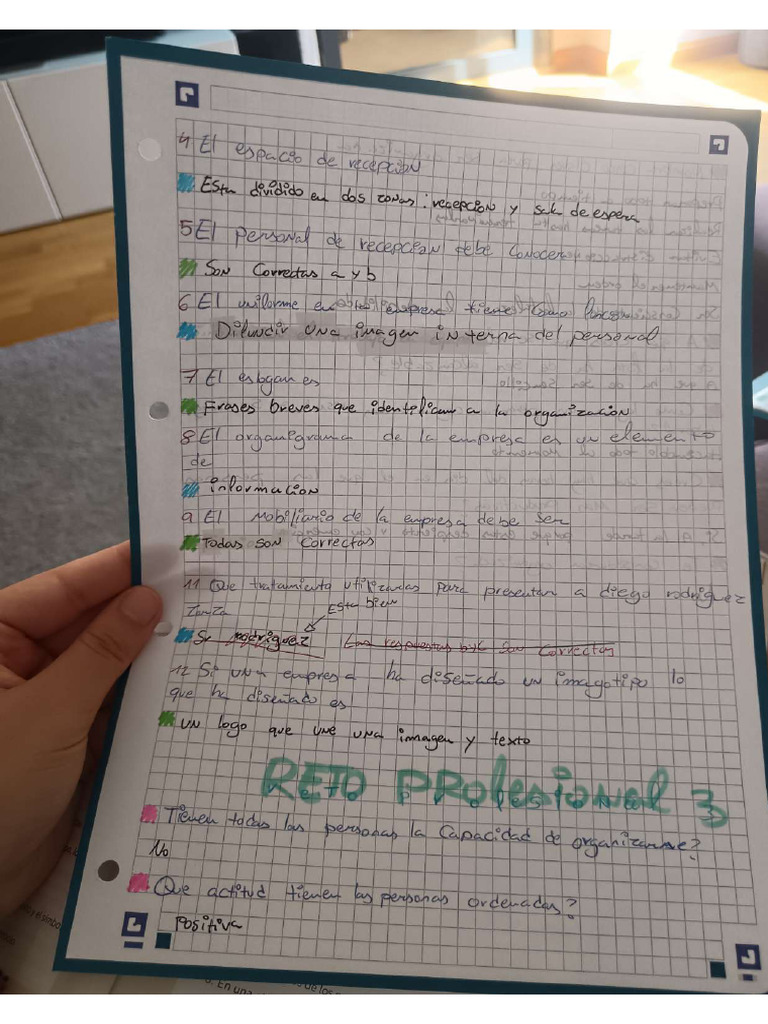 4 El espacio de recepción
Esta dividido en dos zonas: recepcion y sala de espera
5 El personal de recepcion debe conocer
Son Correctas a y b
6 El uniforme en una empresa tiene como funcion
Difundir una imagen interna del personal
7 El eslogan es
Frases breves que identifican a la organización
8 El organigrama de la empresa es un elemento
de
información
9 El mobiliario de la empresa debe ser
Todas son Correctas
11 Que tratamiento utilizadas para presentar a diego rodriguez
Esta bien
Sr rodriguez Las respuestas b y c Son Correctas
12 Si una empresa ha diseñado un imagotipo lo
que ha diseñado es
un logo que une una imagen y texto
RETO PROfesional 3
Tienen todas las personas la Capacidad de organizarse?
No
Que actitud tienen las personas ordenadas?
Positiva
En una